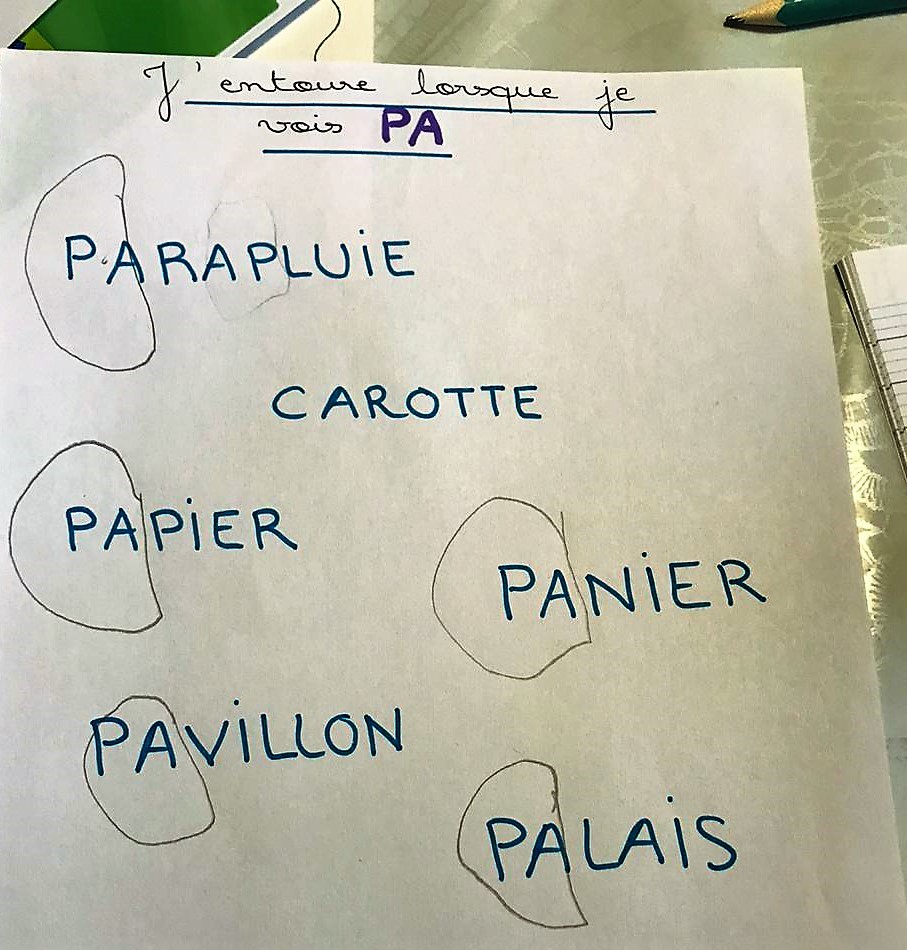 J'entoure lorsque je
vois PA
PARAPLUiE
CAROTTE
PAPiER
PANiER
PAViLLON
PALAiS